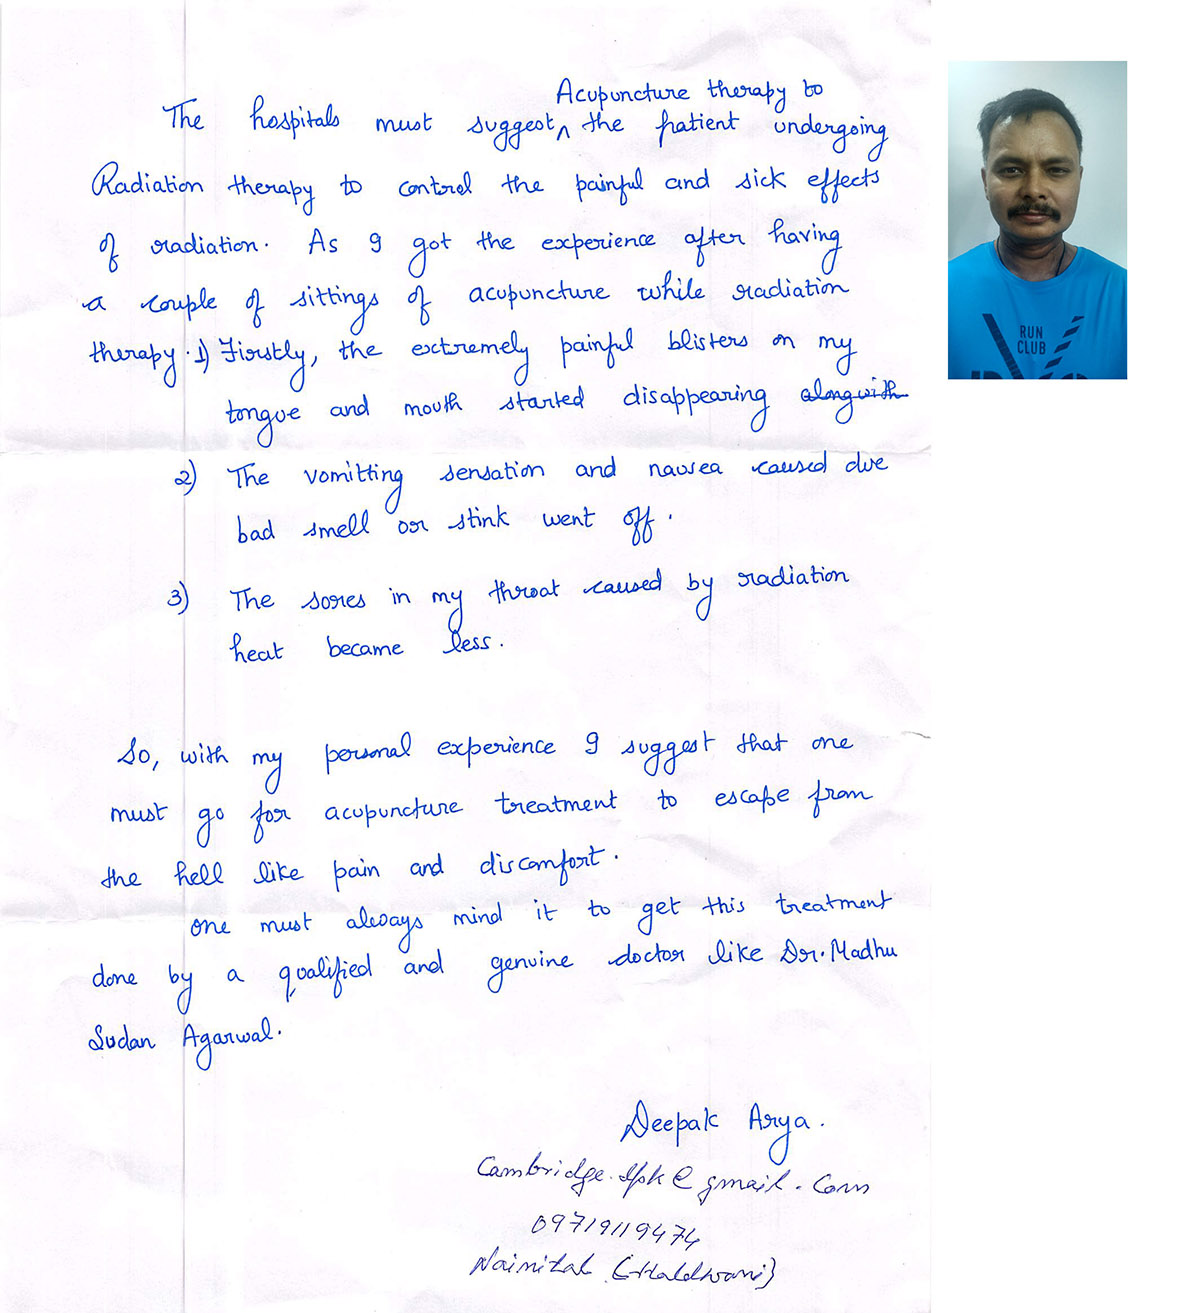 Acupuncture therapy to
The hospitals must suggest ^ the patient undergoing
Radiation therapy to control the painful and sick effects
of radiation. As I got the experience after having
a couple of sittings of acupuncture while radiation
therapy. 1) Firstly, the extremely painful blisters on my
tongue and mouth started disappearing alongwith
2) The vomitting sensation and nausea caused due
bad smell or stink went off.
3) The sores in my throat caused by radiation
heat became less.
So, with my personal experience I suggest that one
must go for acupuncture treatment to escape from
the hell like pain and discomfort.
one must always mind it to get this treatment
done by a qualified and genuine doctor like Dr. Madhu
Sudan Agarwal.
Deepak Arya.
Cambridge.dpk@gmail.com
09719119474
Nainital (Haldwani)
RUN
CLUB